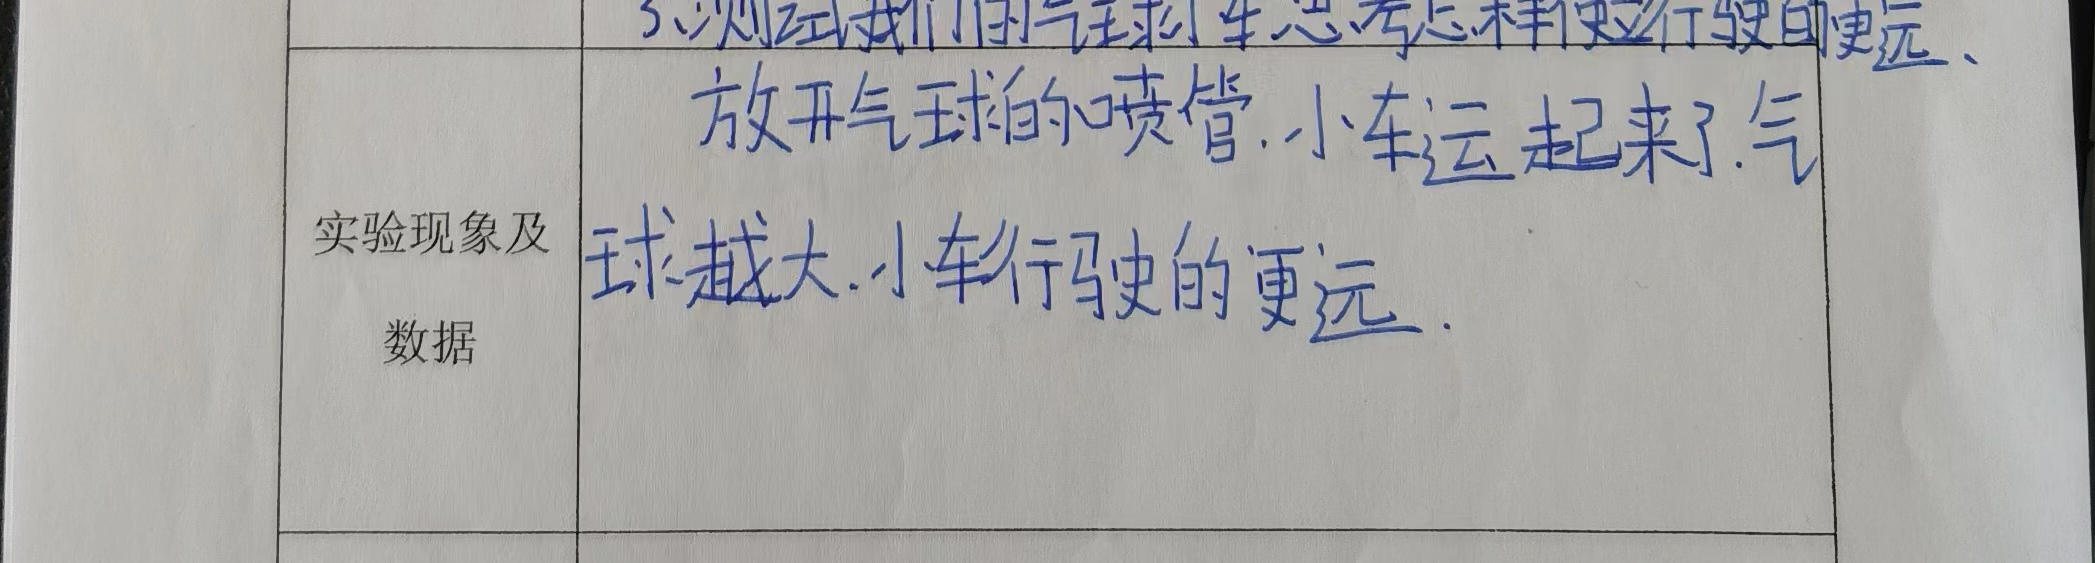 3、测试我们的气球小车思考怎样使它行驶的更远、
放开气球的喷管.小车运起来了.气
球越大.小车行驶的更远.
实验现象及
数据